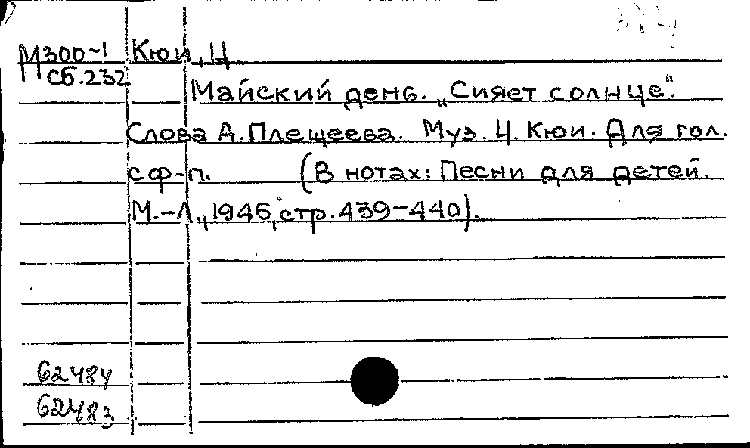 М300-1 Кюи, Ц
Сб.232
Майский день. „Сияет солнце".
Слова А. Плещеева. Муз. Ц. Кюи. Для гол.
с ф-п. (В нотах: Песни для детей.
М.-Л., 1946, стр. 439-440).
62484
62483